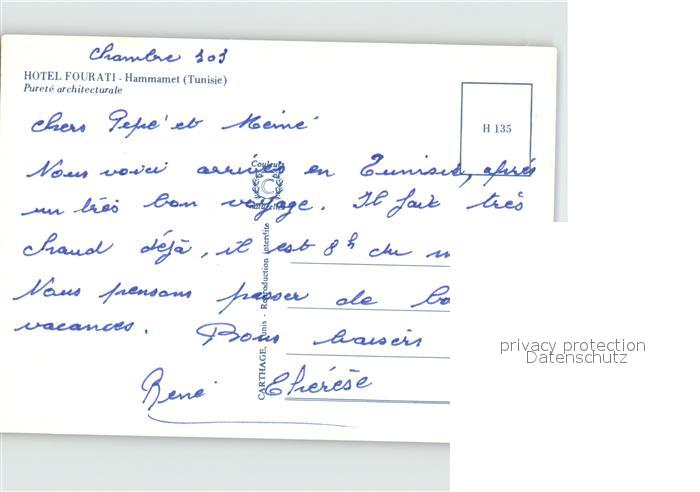 Chambre 303
HOTEL FOURATI - Hammamet (Tunisie)
Pureté architecturale
H 135
Chers Pépé et Mémé
Nous voici arrivés en Tunisie, après
un très bon voyage. Il fait très
chaud déjà, il est 8h du m
Nous pensons passer de bo
vacances. Bons baisers
René Thérèse
Couleurs
naturelles
CARTHAGE, Tunis - Reproduction interdite
privacy protection
Datenschutz